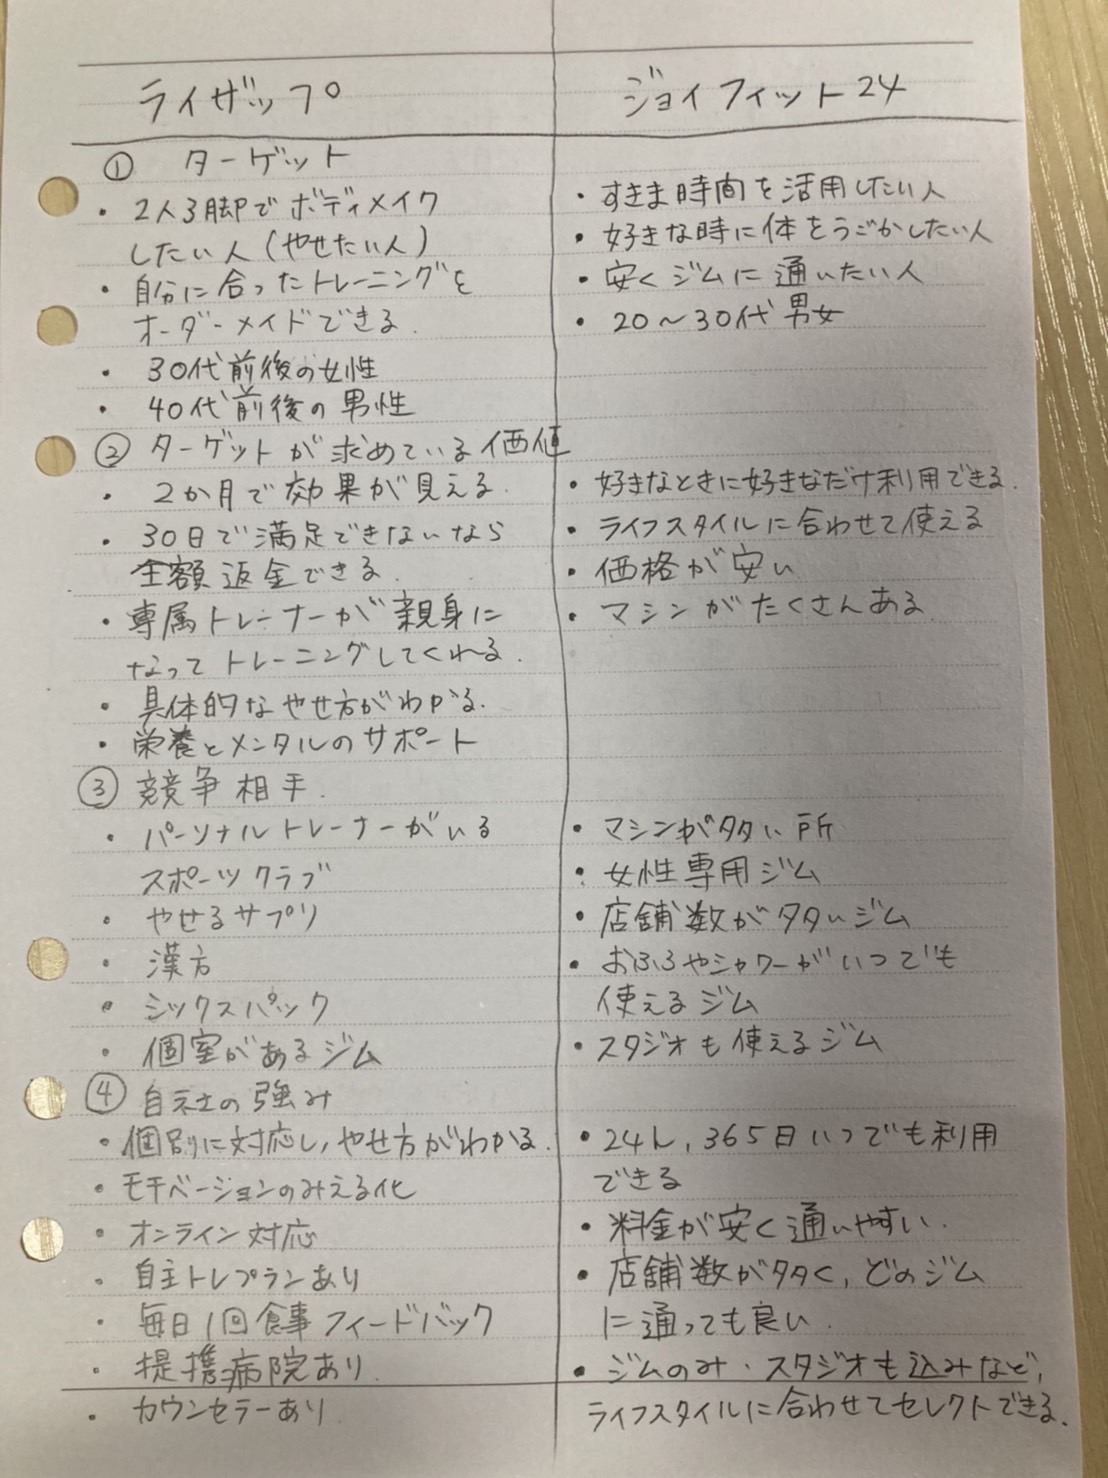 ライザップ
ジョイフィット24
① ターゲット
・2人3脚でボディメイク
したい人(やせたい人)
・自分に合ったトレーニングを
オーダーメイドできる.
・30代前後の女性
・40代前後の男性
・すきま時間を活用したい人
・好きな時に体をうごかしたい人
・安くジムに通いたい人
・20〜30代男女
② ターゲットが求めている価値
・2か月で効果が見える.
・30日で満足できないなら
全額返金できる.
・専属トレーナーが親身に
なってトレーニングしてくれる.
・具体的なやせ方がわかる.
・栄養とメンタルのサポート
・好きなときに好きなだけ利用できる.
・ライフスタイルに合わせて使える
・価格が安い
・マシンがたくさんある
③ 競争相手.
・パーソナルトレーナーがいる
スポーツクラブ
・やせるサプリ
・漢方
・シックスパック
・個室があるジム
・マシンが多い所
・女性専用ジム
・店舗数が多いジム
・おふろやシャワーがいつでも
使えるジム
・スタジオも使えるジム
④ 自社の強み
・個別に対応し,やせ方がわかる.
・モチベーションのみえる化
・オンライン対応
・自主トレプランあり
・毎日1回食事フィードバック
・提携病院あり.
・カウンセラーあり.
・24h,365日いつでも利用
できる
・料金が安く通いやすい.
・店舗数が多く,どのジム
に通っても良い.
・ジムのみ・スタジオも込みなど,
ライフスタイルに合わせてセレクトできる.